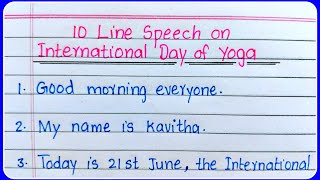 10 Line Speech on
International Day of Yoga
1. Good morning everyone.
2. My name is Kavitha.
3. Today is 21st June, the International